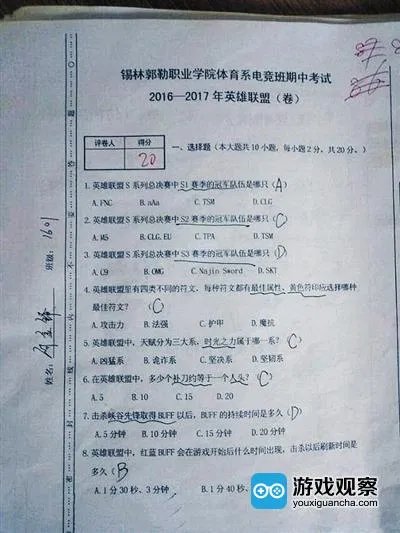 锡林郭勒职业学院体育系电竞班期中考试
2016—2017 年英雄联盟（卷）
评卷人 得分
20
一、选择题（本大题共 10 小题，每小题 2 分，共 20 分。）
1. 英雄联盟 S 系列总决赛中 S1 赛季的冠军队伍是哪只（A）
A. FNC B. aAa C. TSM D. CLG
2. 英雄联盟 S 系列总决赛中 S2 赛季的冠军队伍是哪只（C）
A. M5 B. CLG.EU C. TPA D. TSM
3. 英雄联盟 S 系列总决赛中 S3 赛季的冠军队伍是哪只（D）
A. C9 B. OMG C. Najin Sword D. SKT
4. 英雄联盟里有四类不同的符文，每种符文都有最佳属性，黄色符印应选择哪种
最佳符文？（C）
A. 攻击力 B. 法强 C. 护甲 D. 魔抗
5. 英雄联盟中，天赋分为三大系，时光之力属于哪一系？（C）
A. 凶猛系 B. 诡诈系 C. 坚决系 D. 坚韧系
6. 在英雄联盟中，多少个补刀约等于一个人头？（C）
A. 5 B. 10 C. 15 D. 20
7. 击杀峡谷先锋取得 BUFF 以后，BUFF 的持续时间是多久（D）
A. 5 分钟 B. 10 分钟 C. 15 分钟 D. 20 分钟
8. 英雄联盟中，红蓝 BUFF 会在游戏开始后什么时间出现，击杀以后刷新时间是
多久（B
A. 1 分 30 秒、3 分钟 B. 1 分 40 秒、
班级: 1601
姓名:
游戏观察
youxiguancha.com